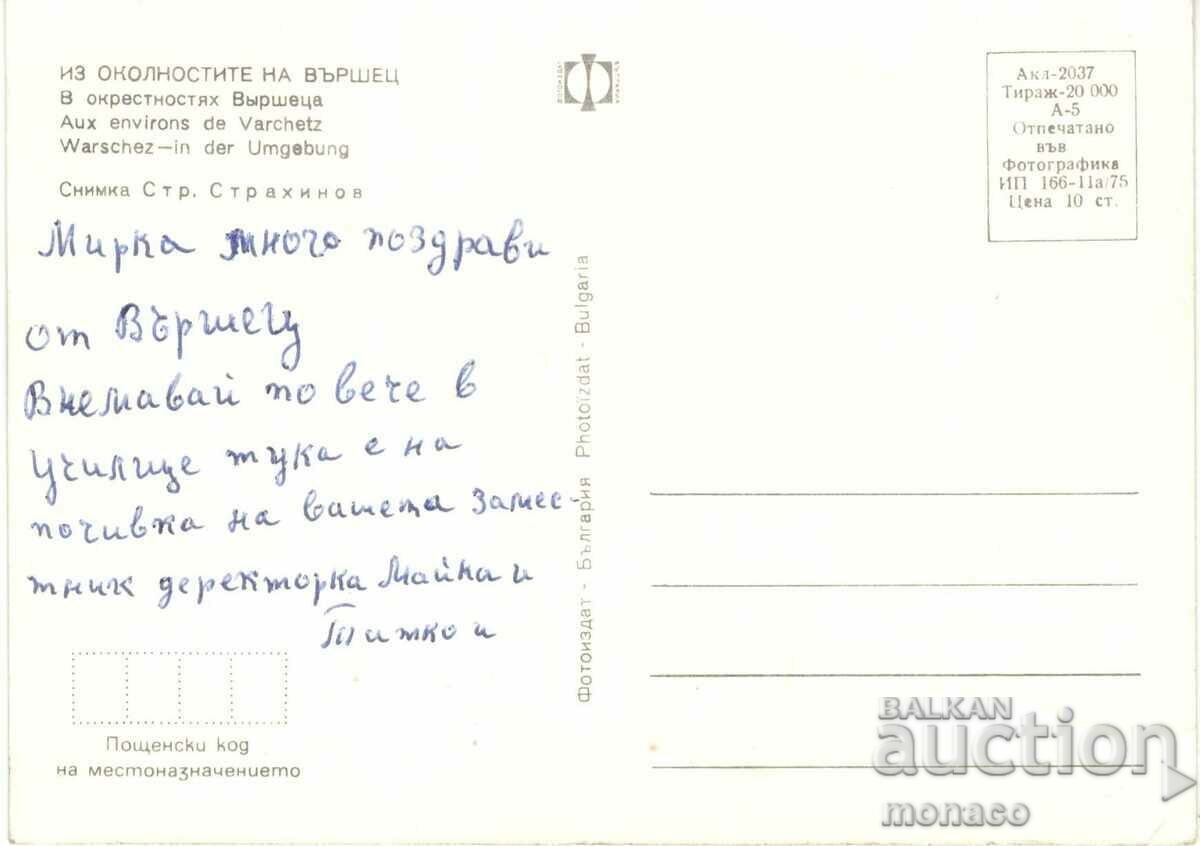 ИЗ ОКОЛНОСТИТЕ НА ВЪРШЕЦ
В окрестностях Выршеца
Aux environs de Varchetz
Warschez—in der Umgebung
Снимка Стр. Страхинов
Мирка много поздрави
от Вършец
Внемавай по вече в
училище тука е на
почивка на вашета замес-
тник деректорка Майка и
Татко и
Пощенски код
на местоназначението
Фотоиздат - България Photoïzdat - Bulgaria
Акл-2037
Тираж-20 000
А-5
Отпечатано
във
Фотографика
ИП 166-11а/75
Цена 10 ст.
BALKAN
auction
monaco